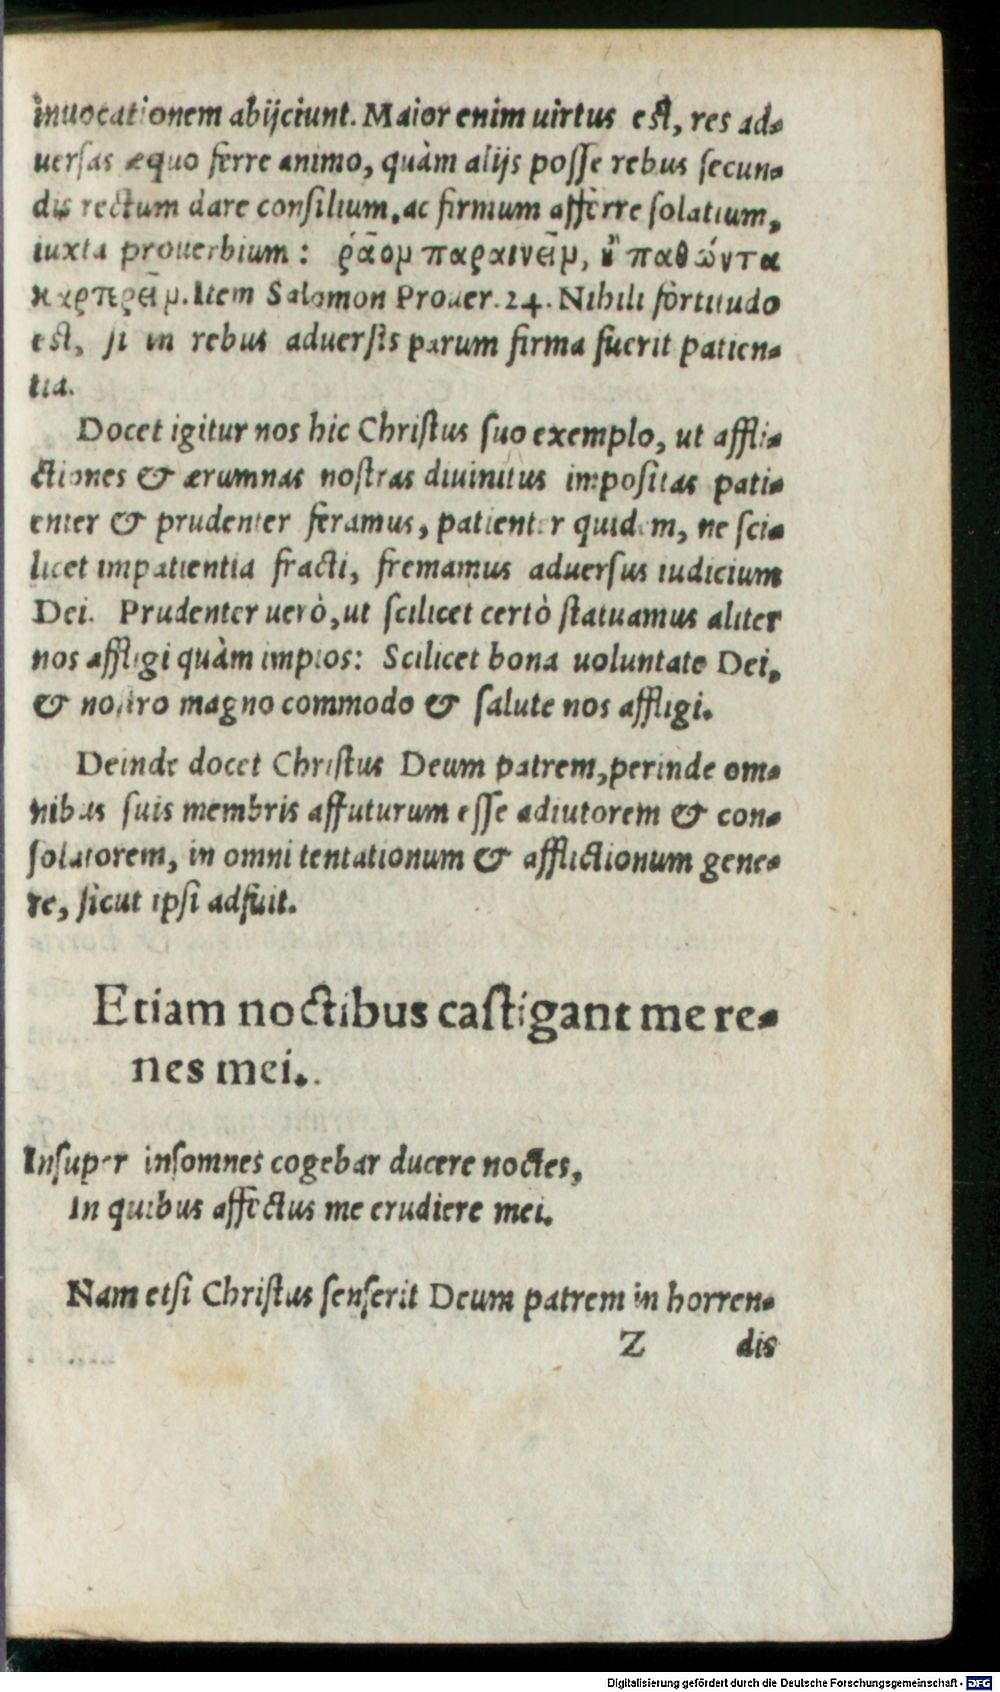 inuocationem abijciunt. Maior enim uirtus est, res ad-
uersas æquo ferre animo, quàm alijs posse rebus secun-
dis rectum dare consilium, ac firmum afferre solatium,
iuxta prouerbium: ῥᾶομ παραινεῖμ, ἢ παθώντα
καρπρεῖμ. Item Salomon Prouer. 24. Nihili fortitudo
est, si in rebus aduersis parum firma fuerit patien-
tia.
Docet igitur nos hic Christus suo exemplo, ut affli-
ctiones & ærumnas nostras diuinitus impositas pati-
enter & prudenter feramus, patienter quidem, ne sci-
licet impatientia fracti, fremamus aduersus iudicium
Dei. Prudenter uerò, ut scilicet certò statuamus aliter
nos affligi quàm impios: Scilicet bona uoluntate Dei,
& nostro magno commodo & salute nos affligi.
Deinde docet Christus Deum patrem, perinde om-
nibus suis membris affuturum esse adiutorem & con-
solatorem, in omni tentationum & afflictionum gene-
re, sicut ipsi adfuit.
Etiam noctibus castigant me re-
nes mei.
Insuper insomnes cogebar ducere noctes,
In quibus affectus me erudiere mei.
Nam etsi Christus senserit Deum patrem in horren-
Z dis
Digitalisierung gefördert durch die Deutsche Forschungsgemeinschaft - DFG